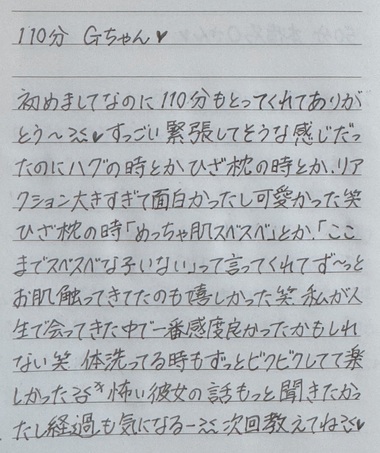 110分 Gちゃん♥
初めましてなのに110分もとってくれてありが
とう〜♥すっごい緊張してそうな感じだっ
たのにハグの時とかひざ枕の時とか、リア
クション大きすぎて面白かったし可愛かった笑
ひざ枕の時「めっちゃ肌スベスベ」とか、「ここ
までスベスベな子いない」って言ってくれてず〜っと
お肌触ってきてたのも嬉しかった笑 私が人
生で会ってきた中で一番感度良かったかもしれ
ない笑 体洗ってる時もずっとビクビクしてて楽
しかった 怖い彼女の話もっと聞きたかっ
たし経過も気になるー 次回教えてね♥